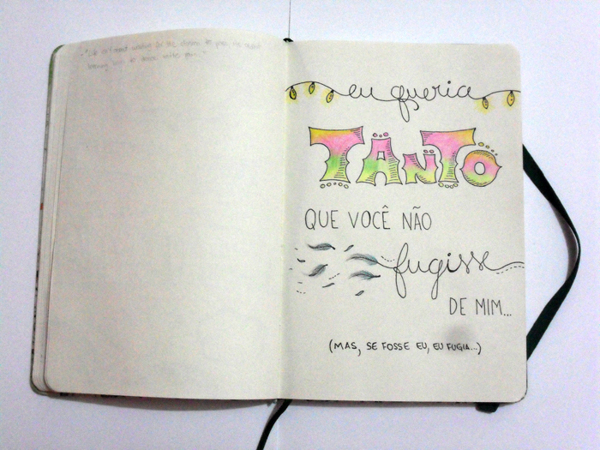 eu queria
TANTO
QUE VOCÊ NÃO
fugisse
DE MIM...
(MAS, SE FOSSE EU, EU FUGIA...)